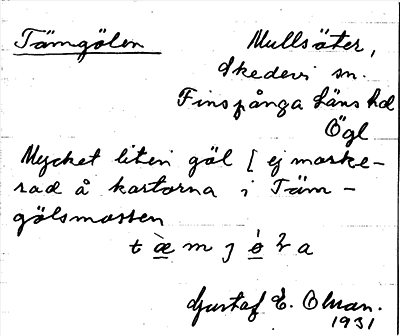 Tämgölen
Mullsäter,
Skedevi sn.
Finspånga läns hd
Ögl
Mycket liten göl [ ej marke-
rad å kartorna i Täm-
gölsmossen
t æ̀ m j ö̀ l a
Gustaf E. Olsson.
1931